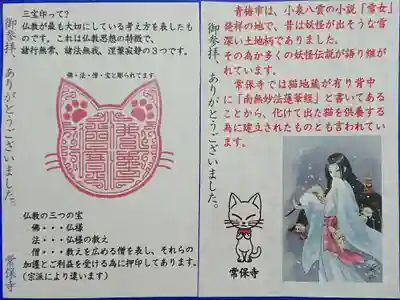 三宝印って?
仏教が最も大切にしている考え方を表したも
のです。これは仏教思想の特徴で、
諸行無常、諸法無我、涅槃寂静の3つです。
佛・法・僧・宝と彫られてます
仏教の三つの宝
佛・・・仏様
法・・・仏様の教え
僧・・・教えを広める僧を表し、それらの
加護とご利益を受ける為に押印してあります。
(宗派により違います)
御参拝、ありがとうございました。
常保寺
青梅市は、小泉八雲の小説「雪女」
発祥の地で、昔は妖怪が出そうな雪
深い土地柄でありました。
その為か多くの妖怪伝説が語り継が
れています。
常保寺では猫地蔵が有り背中
に「南無妙法蓮華経」と書いてある
ことから、化けて出た猫を供養する
為に建立されたものとも言われてい
ます。
常保寺
御参拝、ありがとうございました。